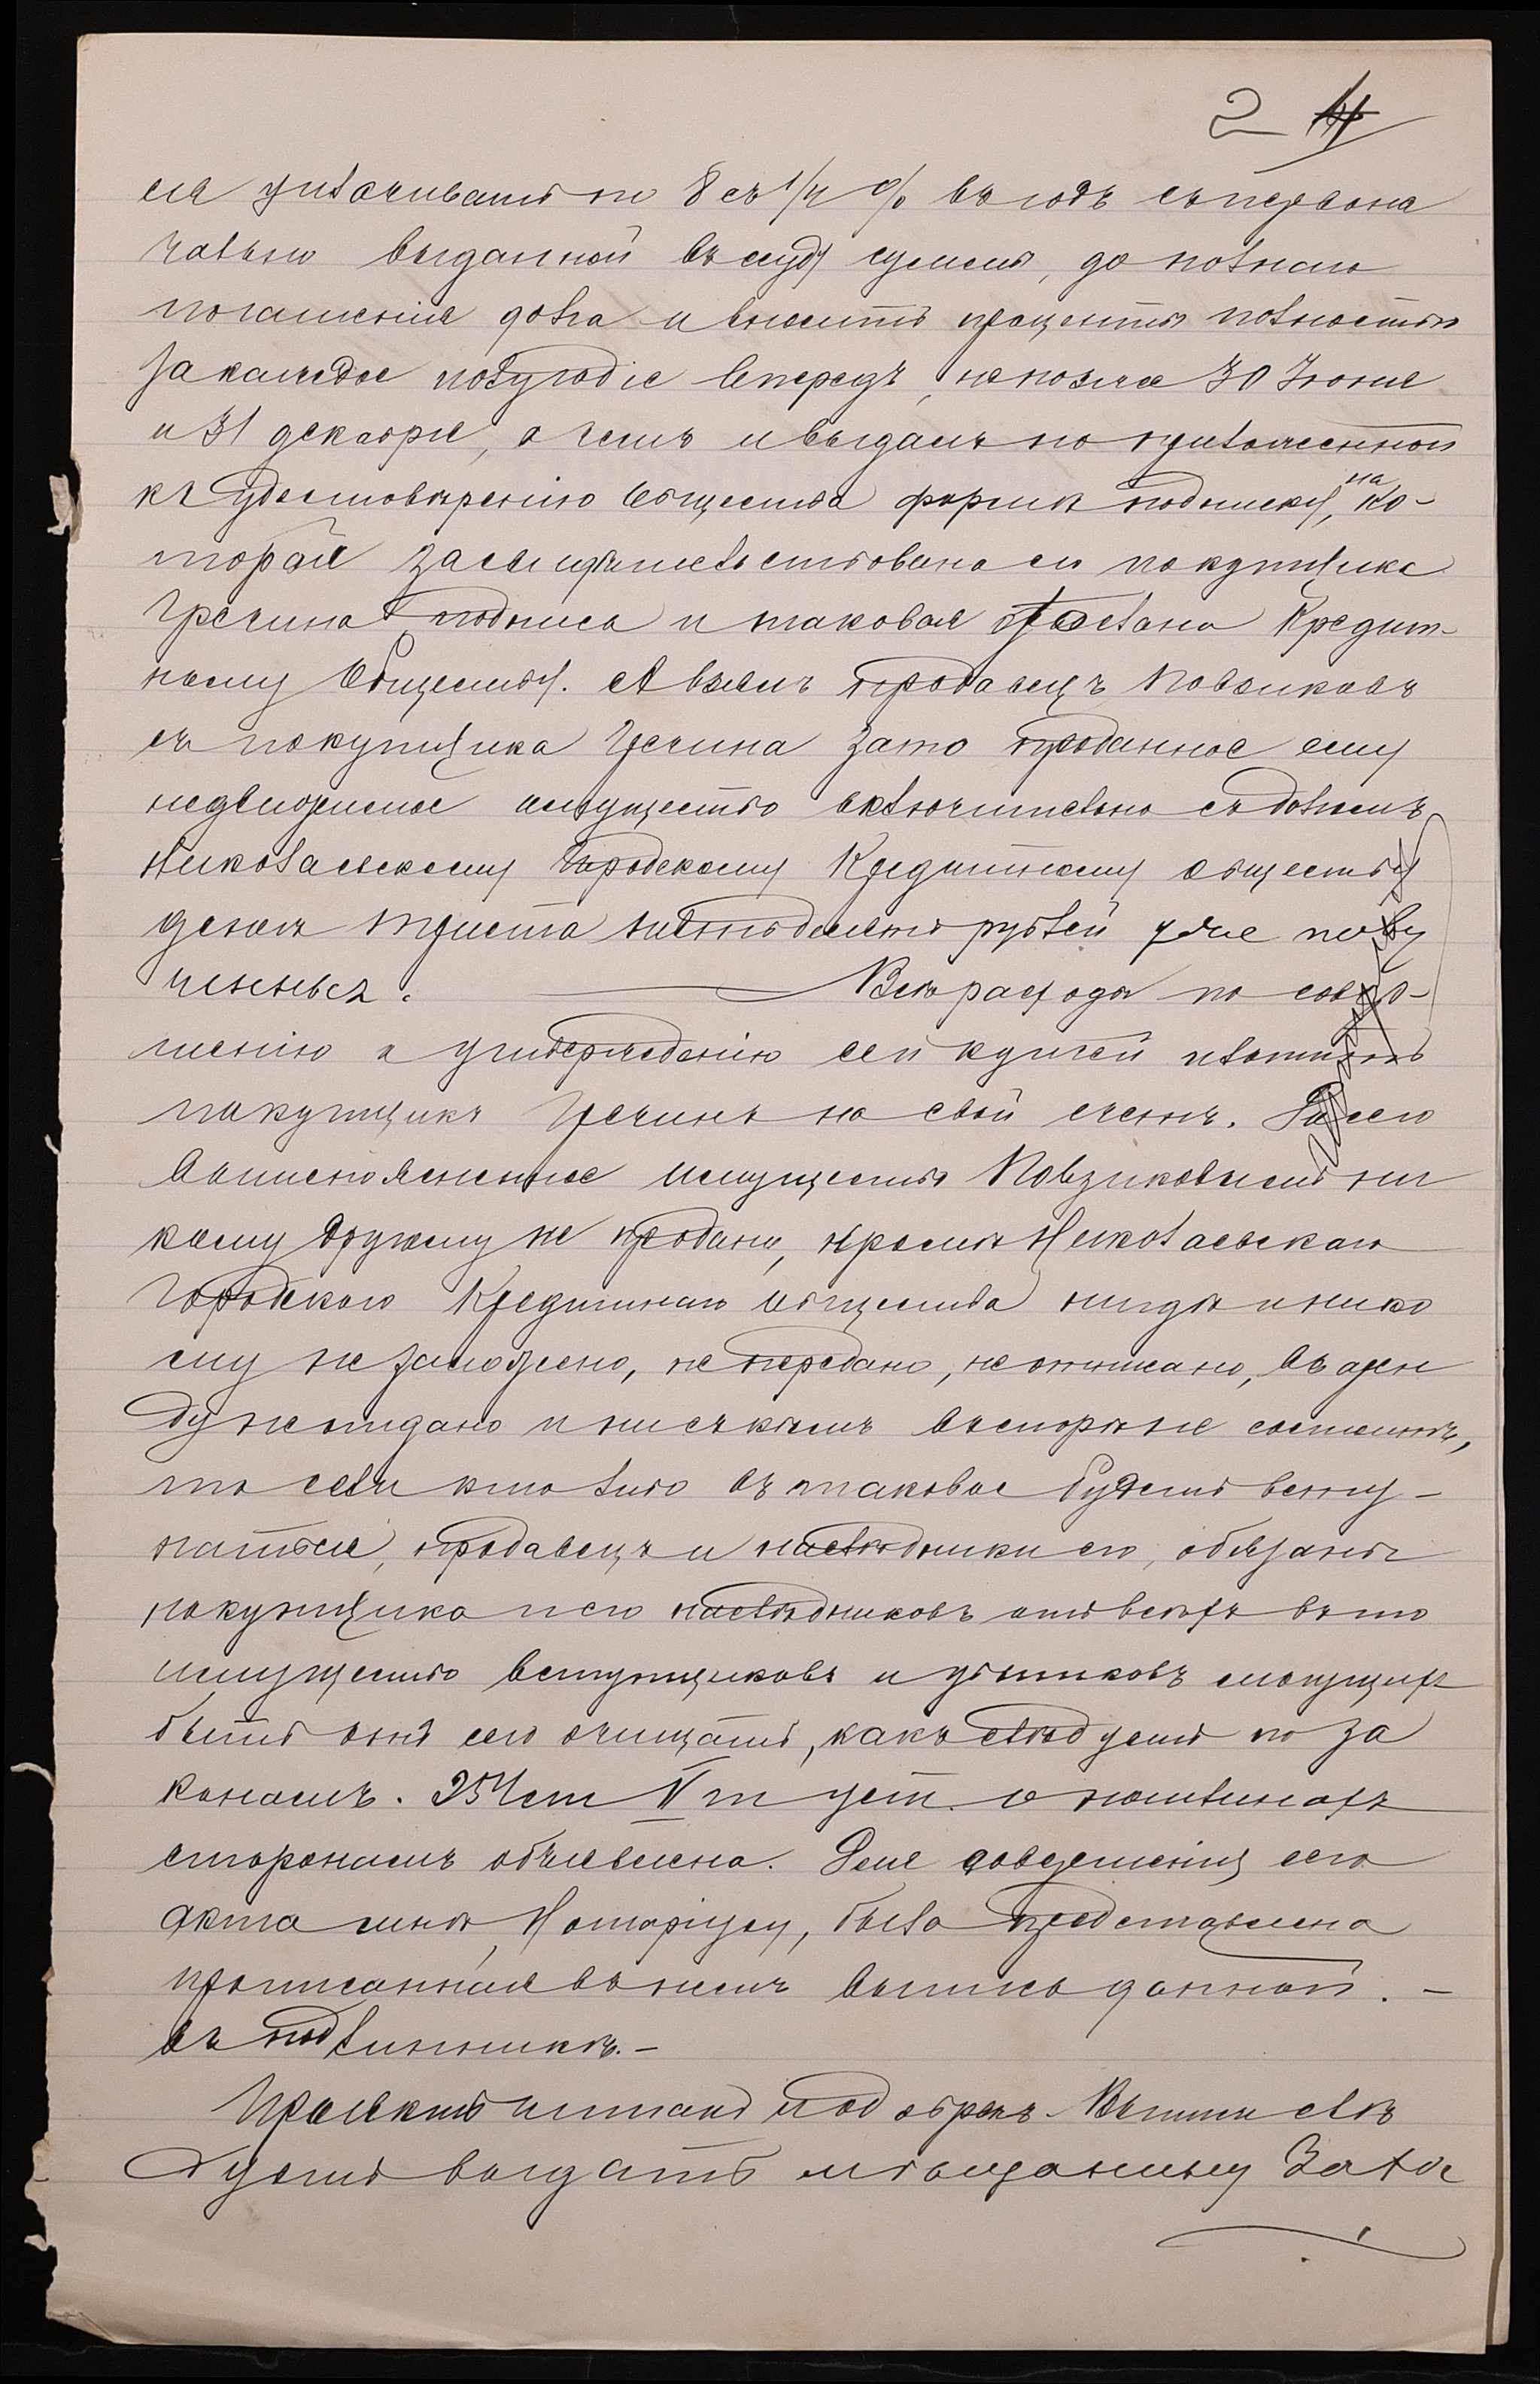 2
ся уплачивать по 8 съ 1/4 % въ годъ съ первона
чально выданной въ ссуду суммы, до полнаго
погашенія долга и вносить проценты полностью
за каждое полугодіе впередъ, не позже 30 Іюня
и 31 декабря, о чемъ и выдалъ по приложенной
къ удостовѣренію Общества формѣ подписку, на ко-
торой засвидѣтельствована его покупщика
Гречина подпись и таковая отослана Кредит-
ному Обществу. А взялъ продавецъ Повзиковъ
съ покупщика Гречина за то проданное ему
недвижимое имущество включительно съ долгомъ
Николаевскому Городскому Кредитному обществу
денегъ триста пятьдесятъ рублей уже полу
ченныхъ. Всѣ расходы по совер-
шенію и утвержденію сей купчей платитъ
покупщикъ Гречинъ на свой счетъ. До сего
вышепоясненное имущество Повзиковымъ ни
кому другому не продано, кромѣ Николаевскаго
Городскаго Кредитнаго Общества нигдѣ и нико
му не заложено, не передано, не отписано, въ арен
ду не отдано и ни съ кѣмъ въ спорѣ не состоитъ,
то если кто либо въ таковое будетъ всту-
паться, продавецъ и наслѣдники его, обязаны
покупщика и его наслѣдниковъ отъ всѣхъ въ то
имущество вступщиковъ и убытковъ могущихъ
быть отъ сего очищать, какъ слѣдуетъ по за
конамъ. 254 ст V т уст. о пошлинахъ
сторонамъ объявлена. Для совершенія сего
акта мнѣ, Нотаріусу, была представлена
прописанная въ немъ выпись данной. -
въ подлинникѣ. -
Проектъ читанъ и одобренъ. Выпись
будетъ выдать мѣщанину Зала